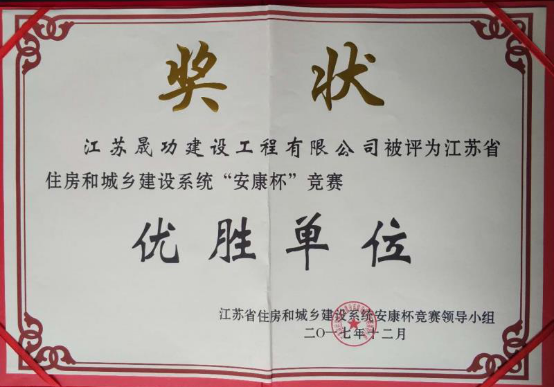 奖状
江苏晟功建设工程有限公司被评为江苏省
住房和城乡建设系统“安康杯”竞赛
优胜单位
江苏省住房和城乡建设系统安康杯竞赛领导小组
二〇一七年十二月